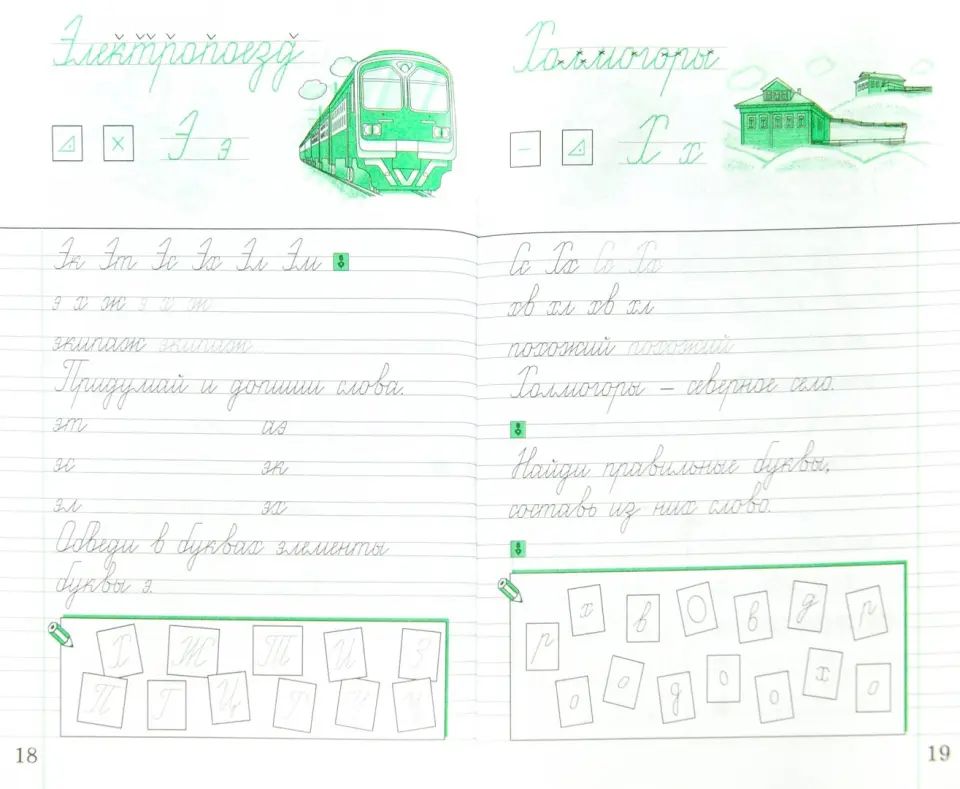 Электропоезд
Э э
Эк Эт Эс Эх Эл Эм
э х ж э х ж
экипаж экипаж
Придумай и допиши слова.
эт аэ
эс эк
эл эх
Обведи в буквах элементы
буквы э.
Х Ж Т И З
П Г Ц
18
Холмогоры
Х х
Сс Хх Сс Хх
хв хл хв хл
похожий похожий
Холмогоры – северное село.
Найди правильные буквы,
составь из них слово.
х в О в д р
р о о д о о х о
19